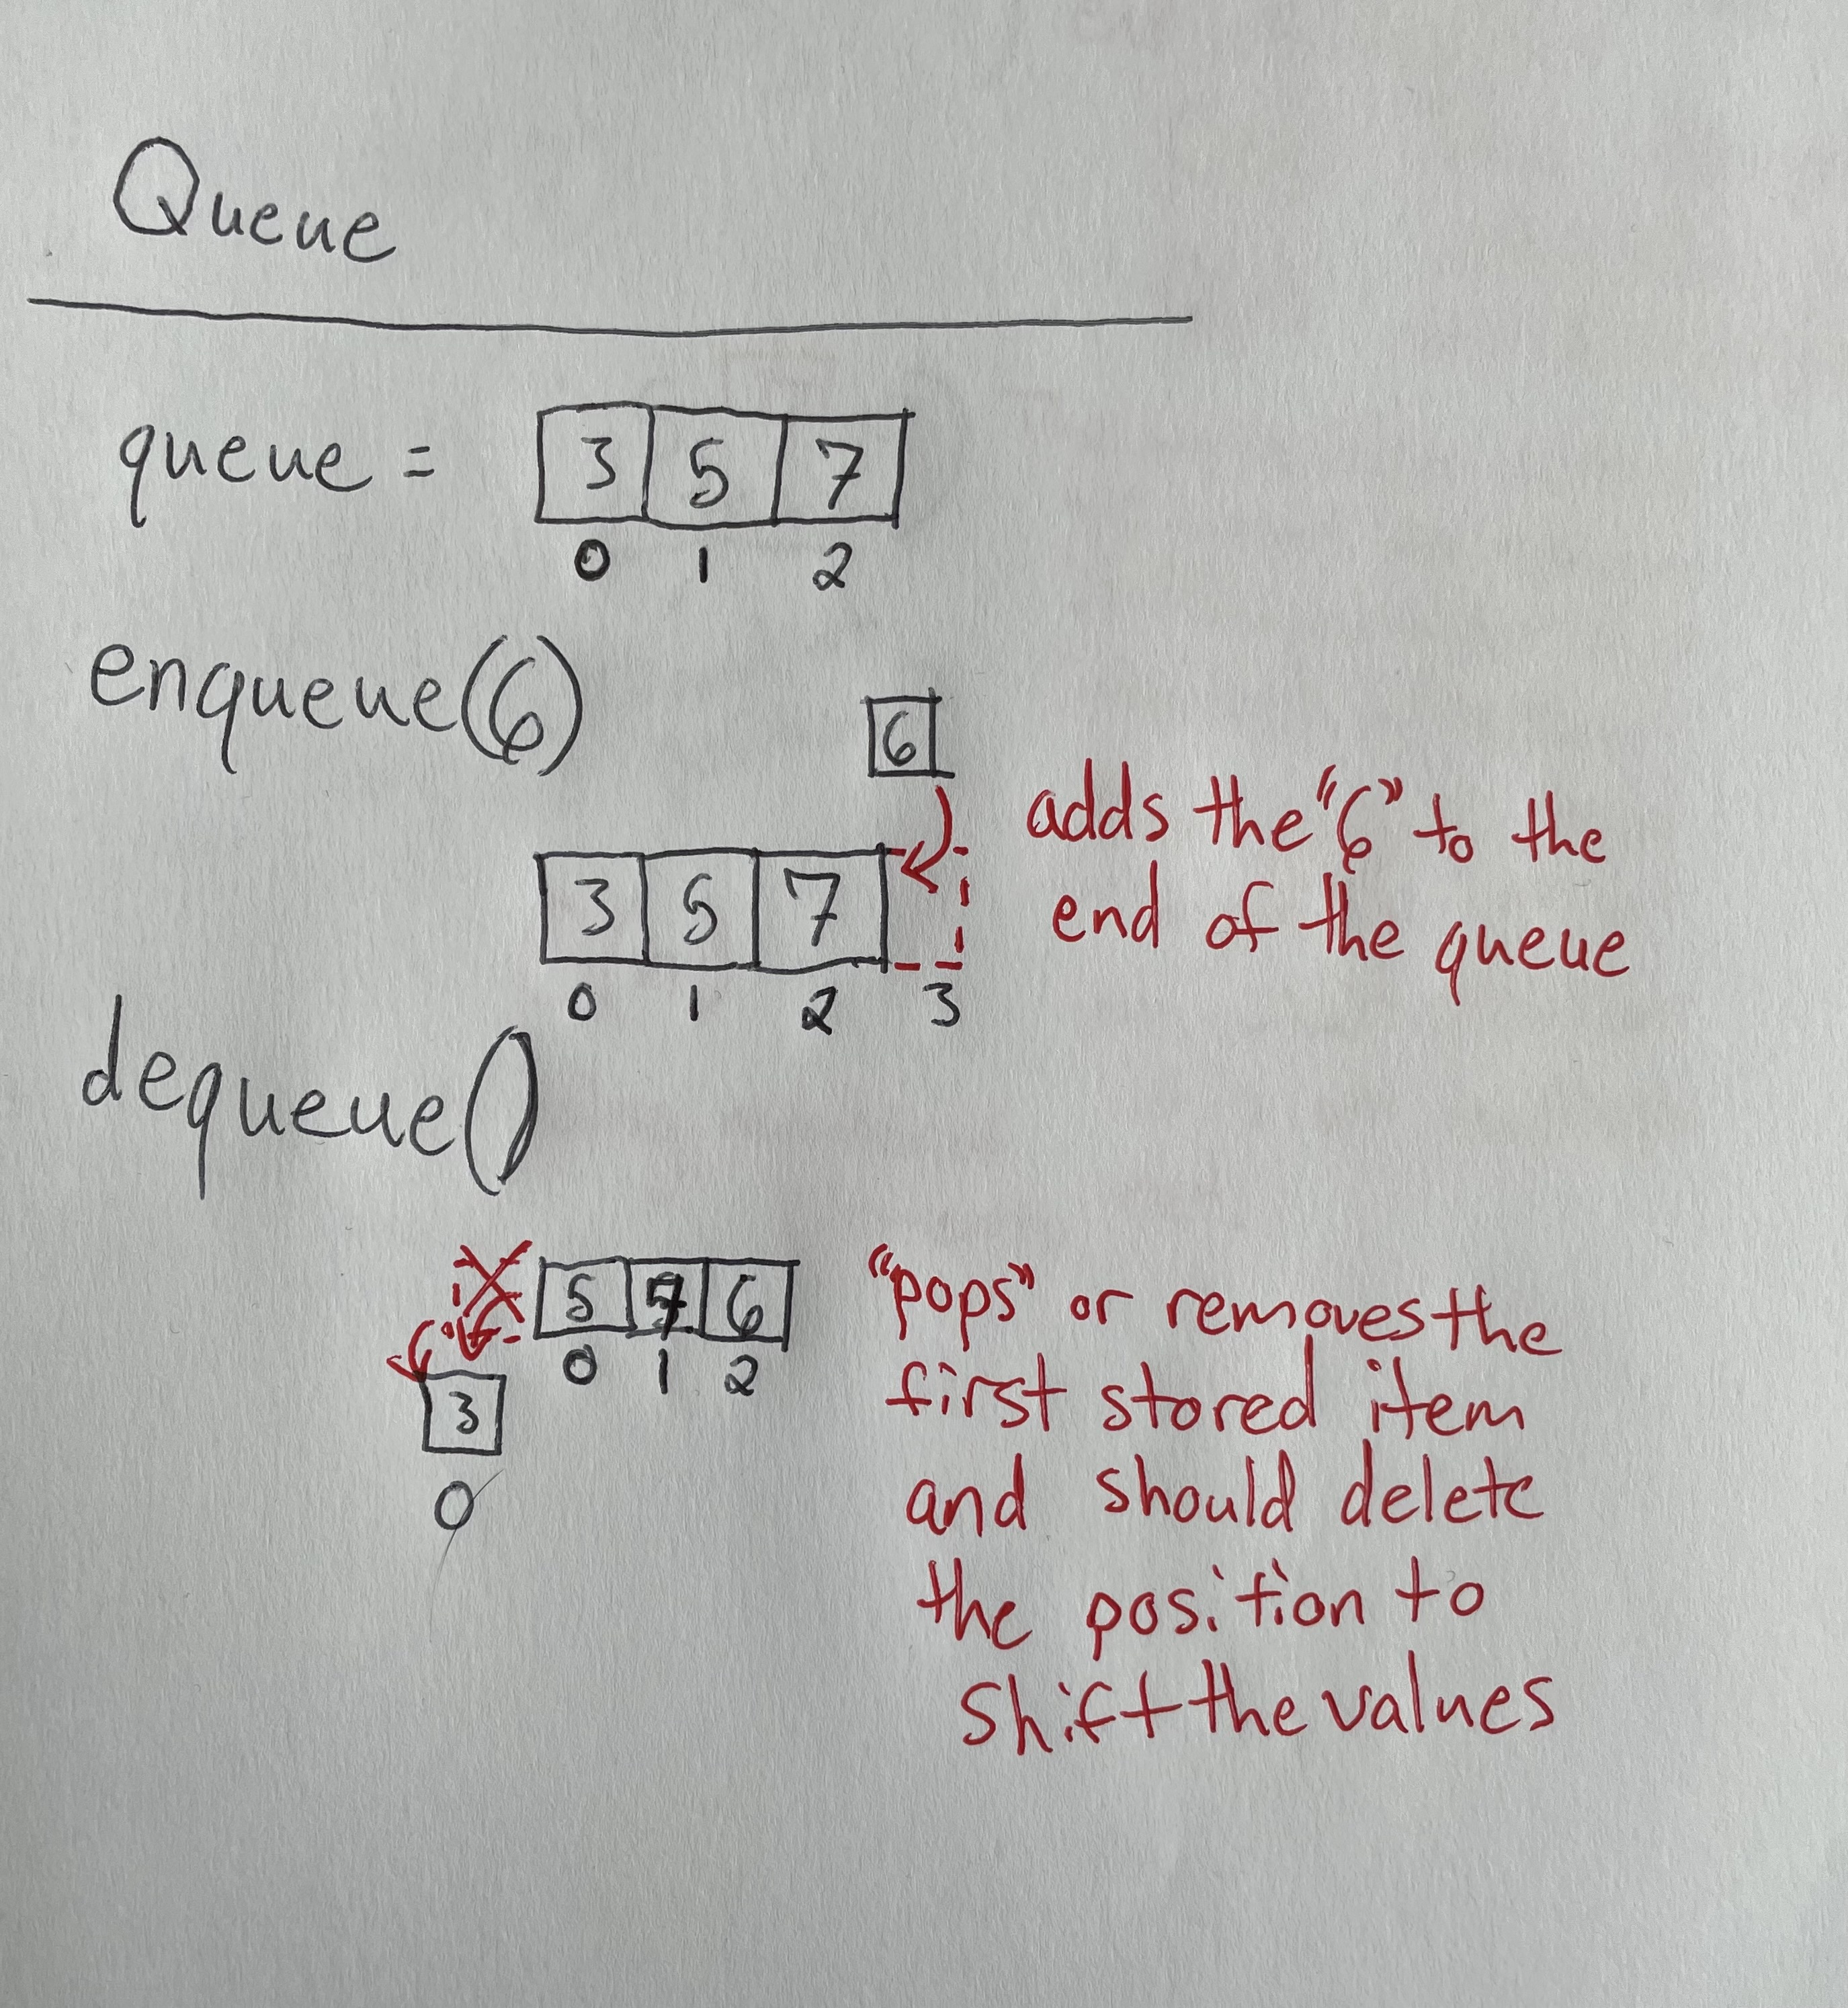 Queue
queue = 3 5 7
0 1 2
enqueue(6)
6
adds the "6" to the
end of the queue
3 5 7
0 1 2 3
dequeue()
5 7 6
0 1 2
3
0
"pops" or removes the
first stored item
and should delete
the position to
shift the values